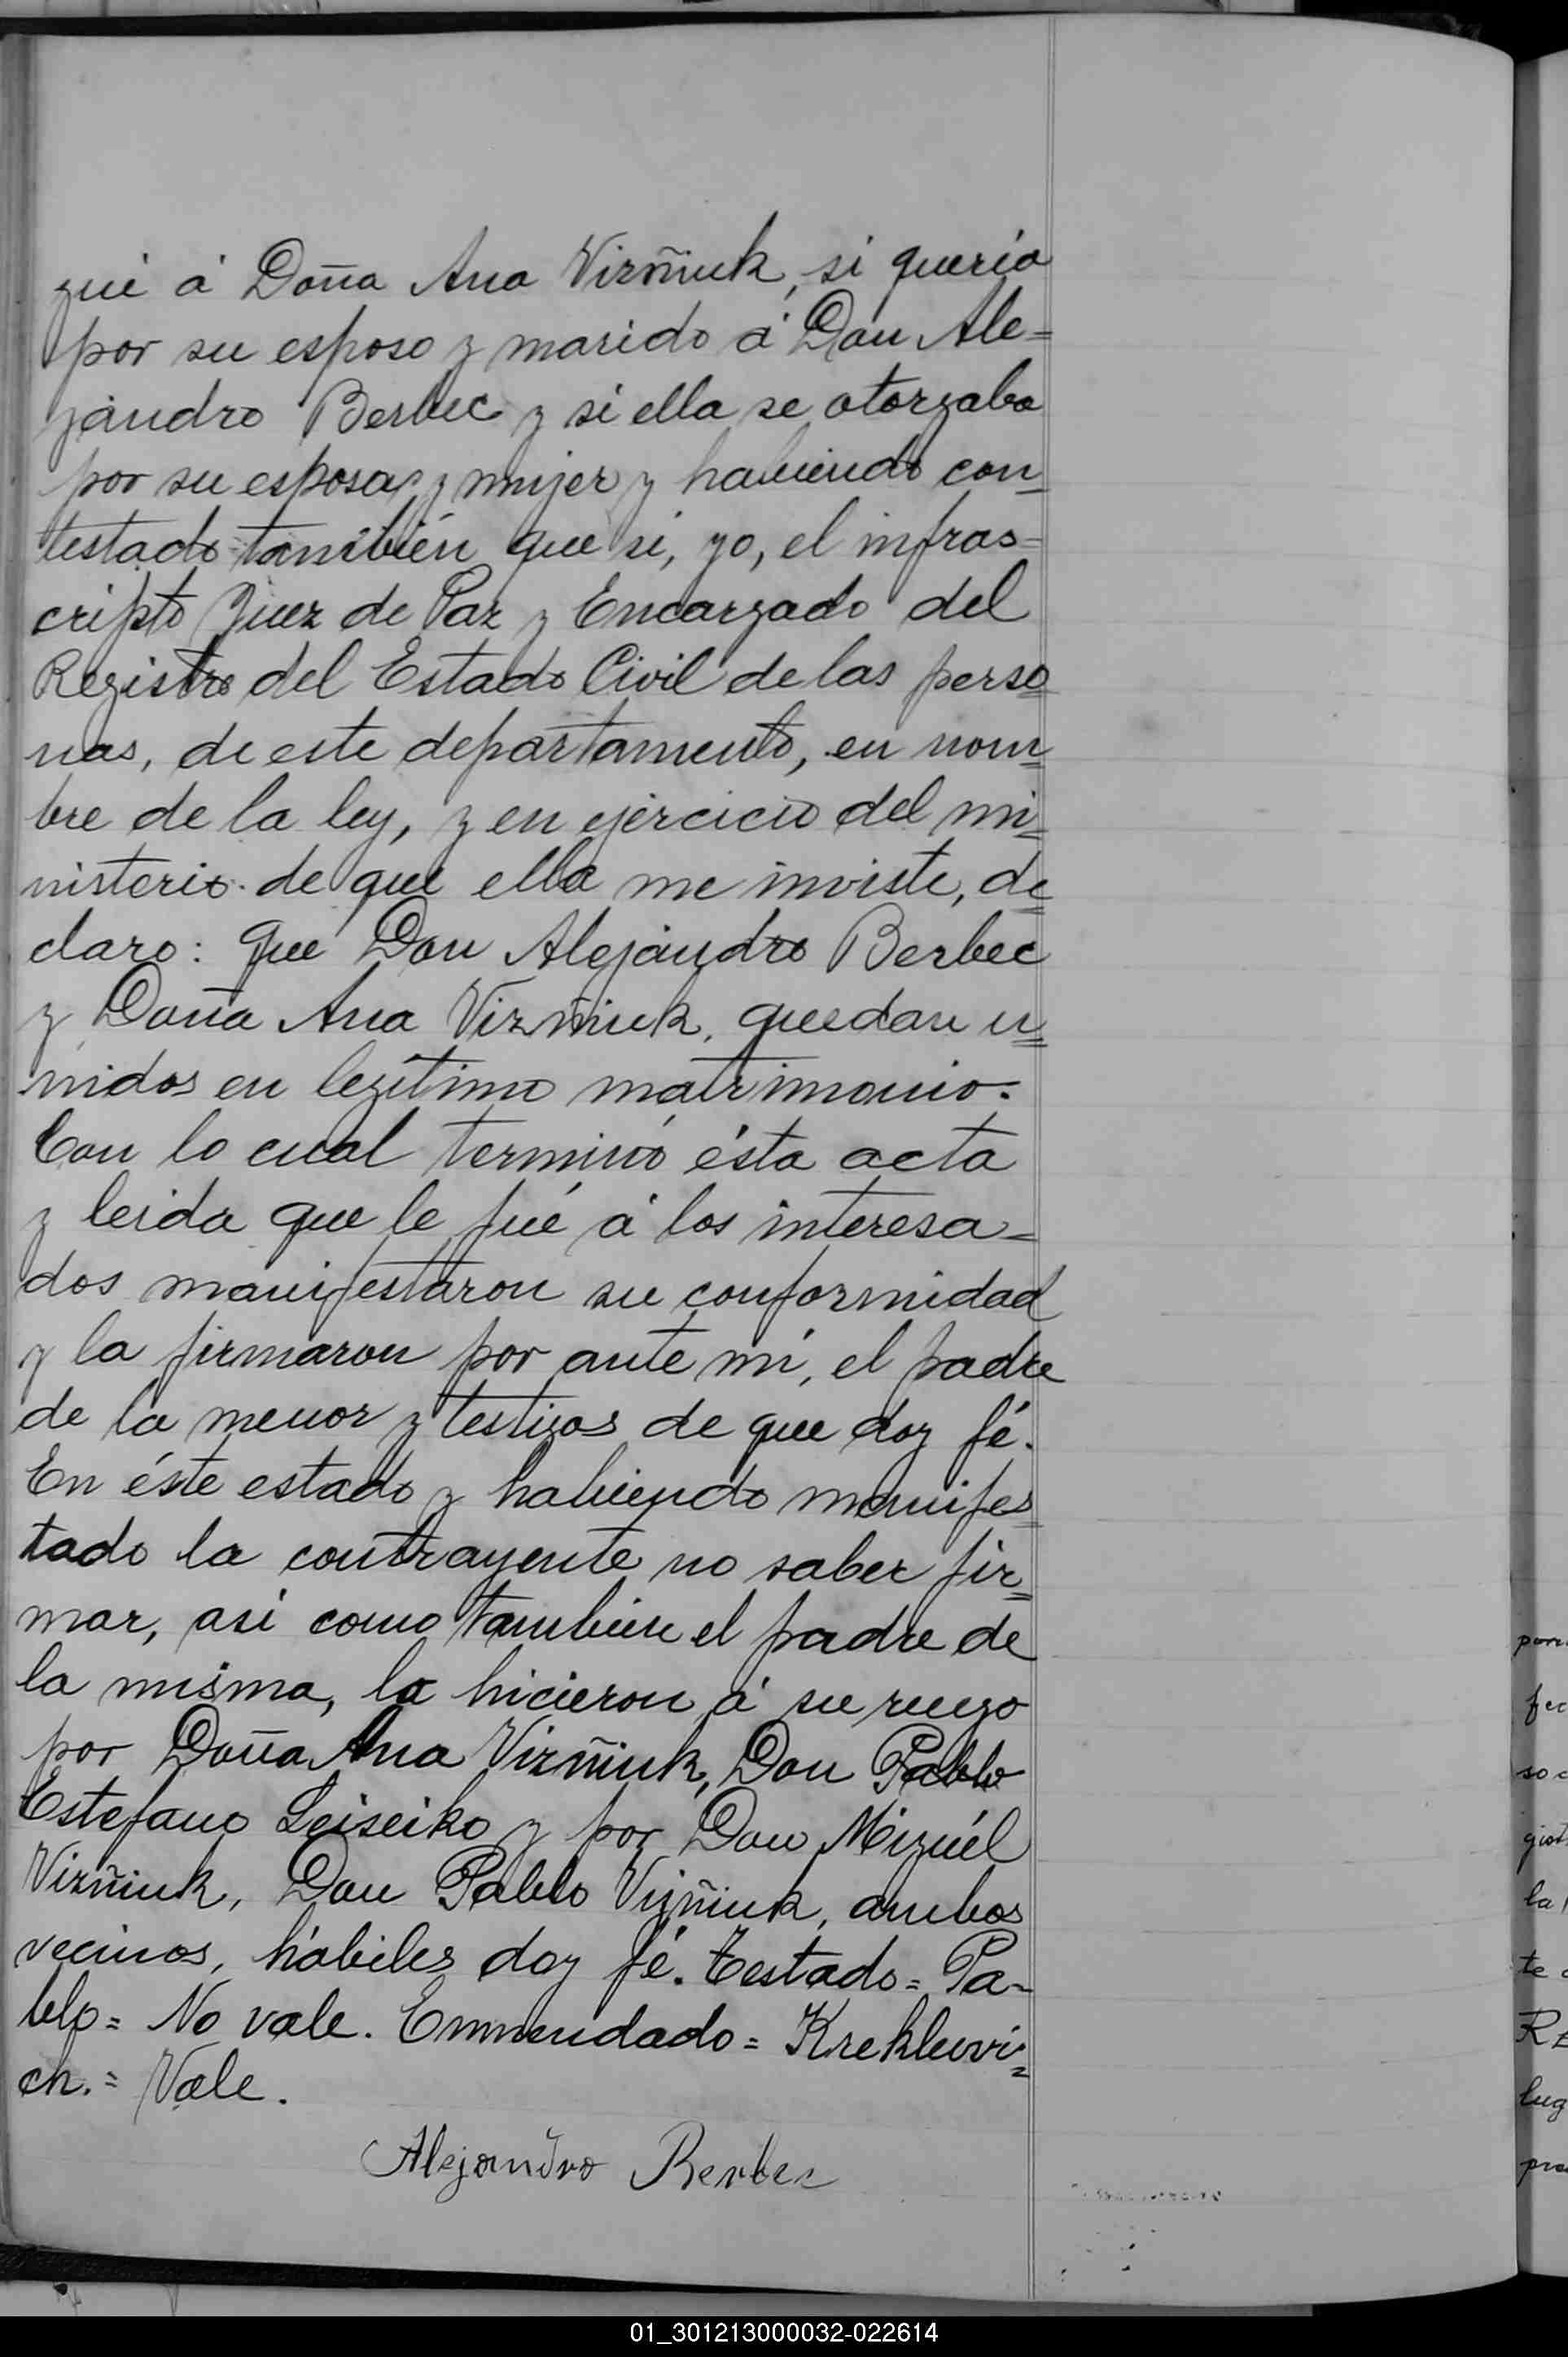 gué á Doña Ana Vizñiuk, si quería
por su esposo y marido á Don Ale=
jandro Berbec y si ella se otorgaba
por su esposa y mujer y habiendo con=
testado también que si, yo, el infras=
cripto Juez de Paz y Encargado del
Registro del Estado Civil de las perso=
nas, de este departamento, en nom=
bre de la ley, y en ejercicio del mi=
nisterio de que ella me inviste, de=
claro: que Don Alejandro Berbec
y Doña Ana Vizñiuk, quedan u=
nidos en legítimo matrimonio.
Con lo cual terminó ésta acta
y leida que le fué á los interesa=
dos manifestaron su conformidad
y la firmaron por ante mí, el padre
de la menor y testigos de que doy fé.
En éste estado y habiendo manifes=
tado la contrayente no saber fir=
mar, asi como tambien el padre de
la misma, la hicieron á su ruego
por Doña Ana Vizñiuk, Don Pablo
Estefano Seiseiko y por Don Miguél
Vizñiuk, Don Pablo Vizñiuk, ambos
vecinos, hábiles doy fé. Testado = Pa=
blo = No vale. Emmendado = Krekluvi=
ch. = Vale.
Alejandro Berbec
por
fe
so
gist
la
te
Re
lug
pro
01_301213000032-022614